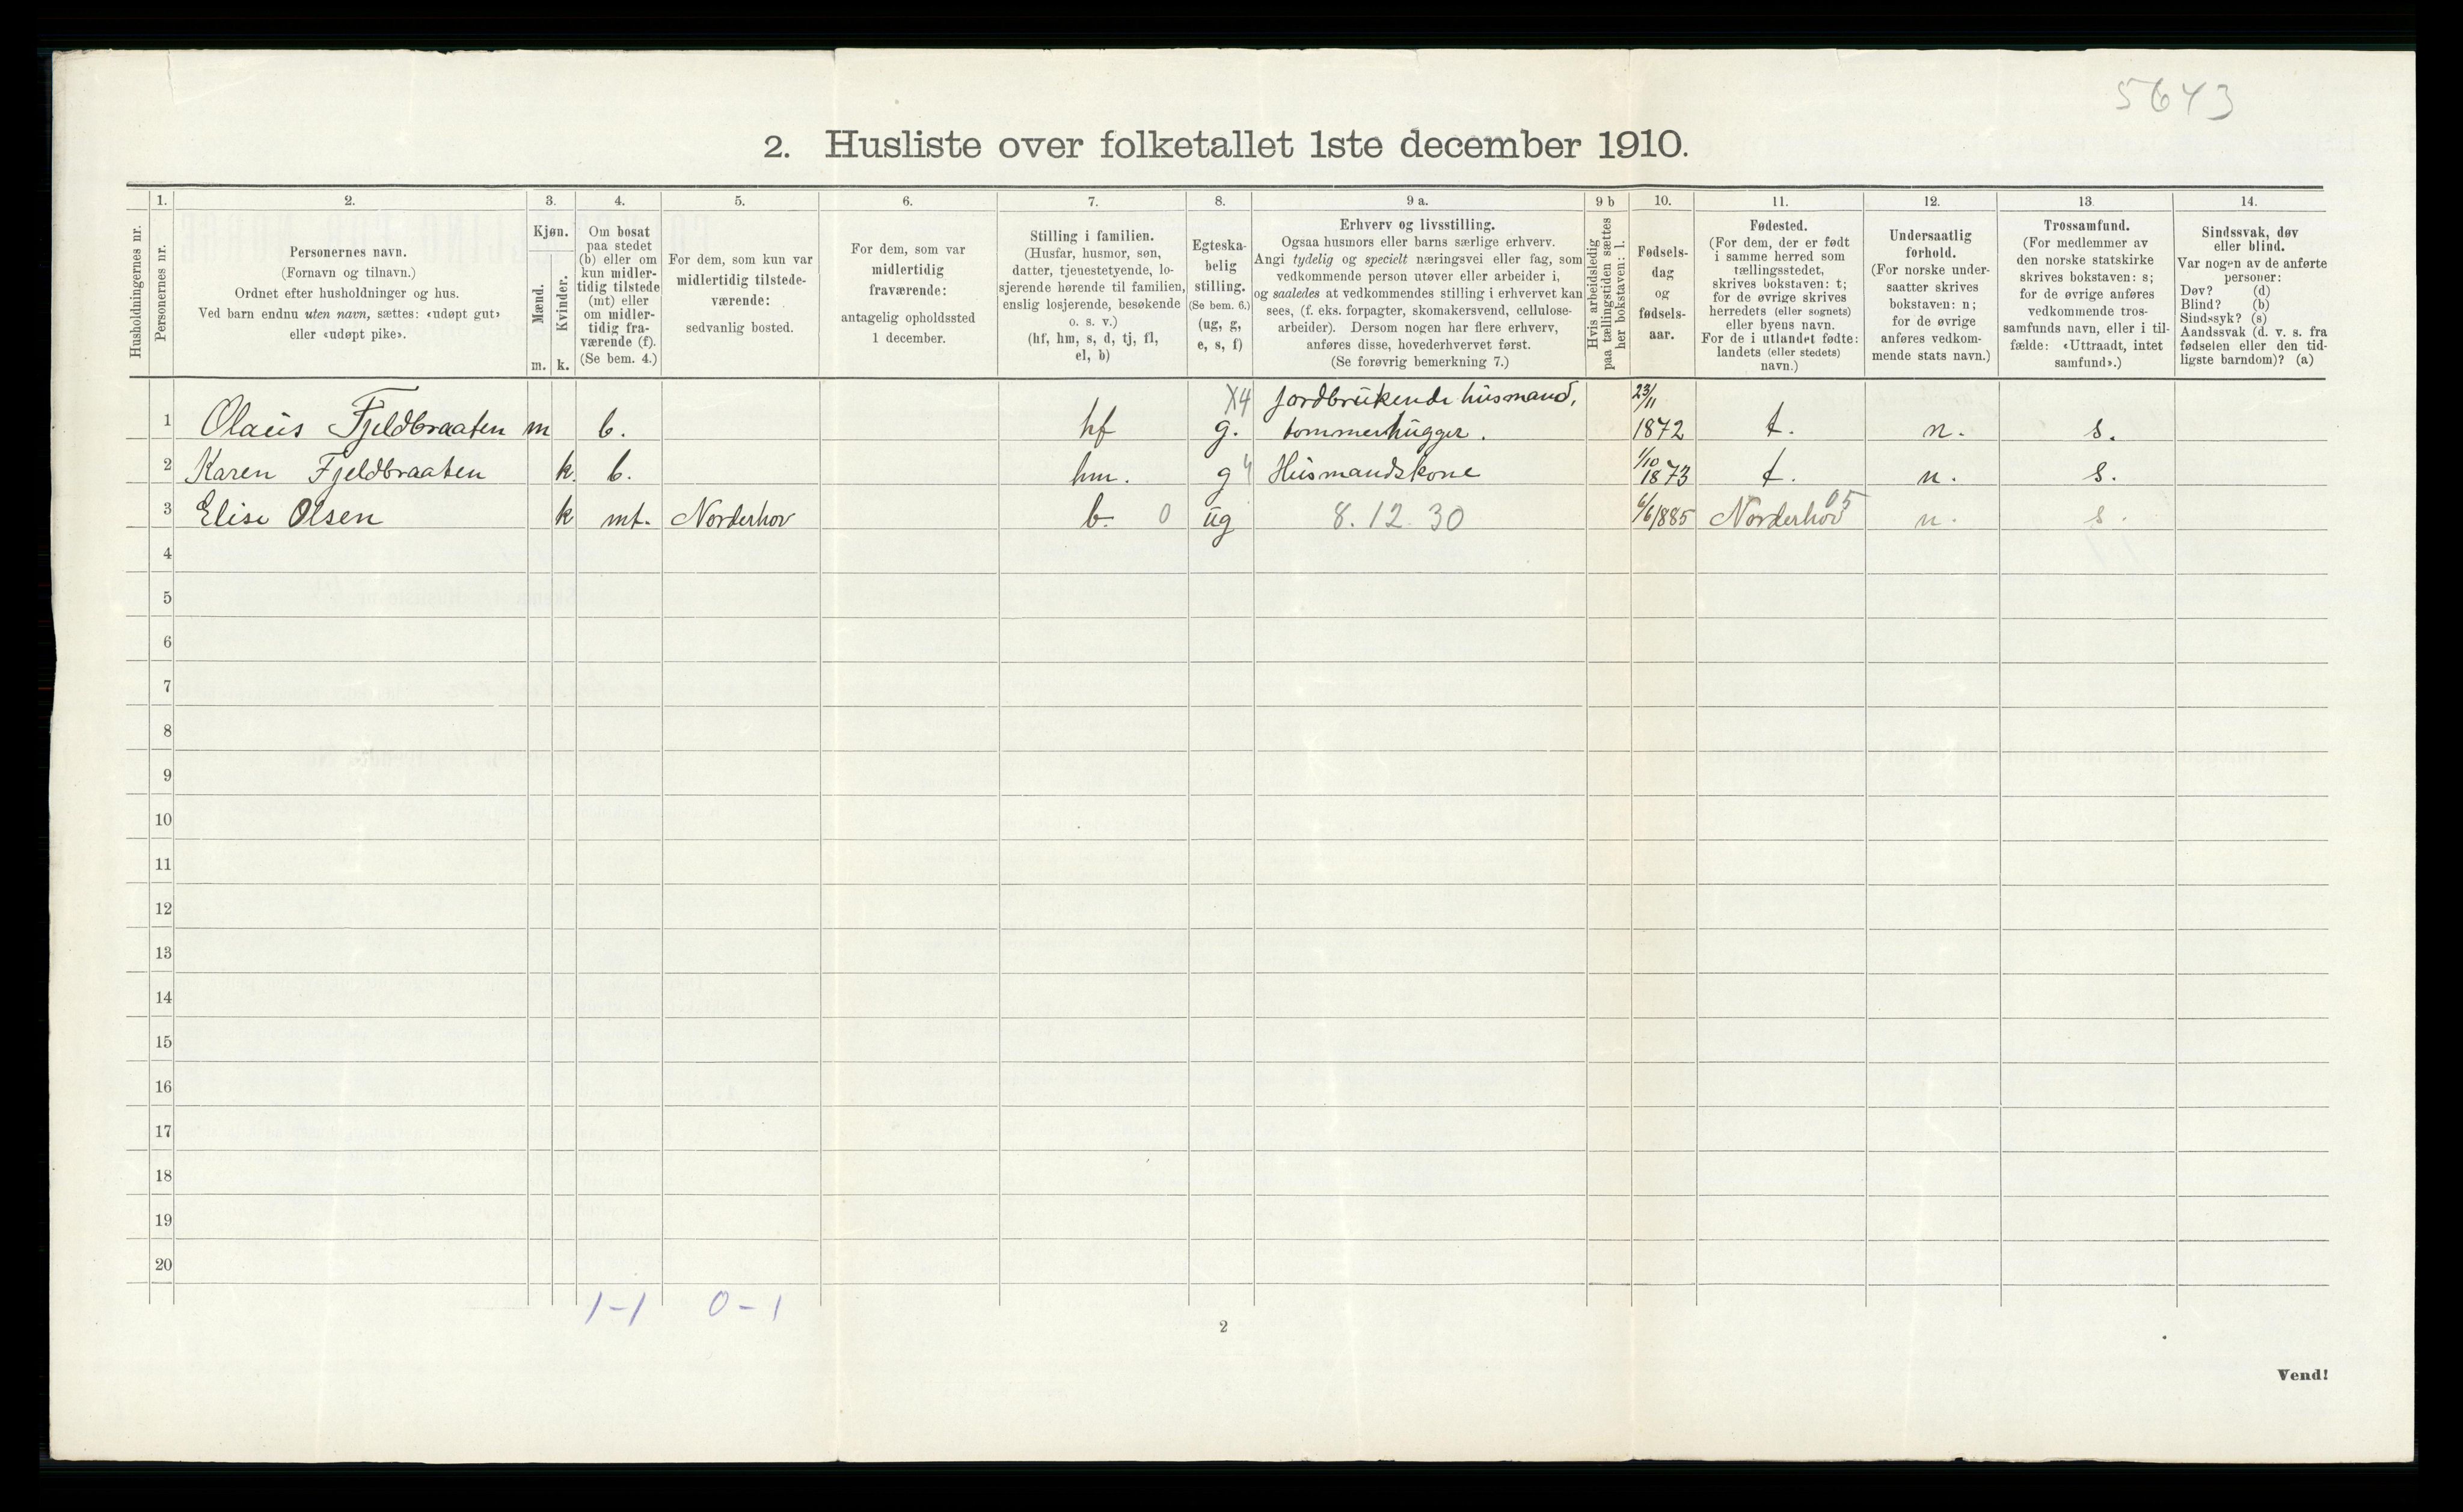 5643
2. Husliste over folketallet 1ste december 1910.
Husholdningernes nr.
1.
Personernes nr.
2.
Personernes navn.
(Fornavn og tilnavn.)
Ordnet efter husholdninger og hus.
Ved barn endnu uten navn, sættes: «udøpt gut»
eller «udøpt pike».
3.
Kjøn.
Mænd.
Kvinder.
m. k.
4.
Om bosat
paa stedet
(b) eller om
kun midler-
tidig tilstede
(mt) eller
om midler-
tidig fra-
værende (f).
(Se bem. 4.)
5.
For dem, som kun var
midlertidig tilstede-
værende:
sedvanlig bosted.
6.
For dem, som var
midlertidig
fraværende:
antagelig opholdssted
1 december.
7.
Stilling i familien.
(Husfar, husmor, søn,
datter, tjenestetyende, lo-
sjerende hørende til familien,
enslig losjerende, besøkende
o. s. v.)
(hf, hm, s, d, tj, fl,
el, b)
8.
Egteska-
belig
stilling.
(Se bem. 6.)
(ug, g,
e, s, f)
9 a.
Erhverv og livsstilling.
Ogsaa husmors eller barns særlige erhverv.
Angi tydelig og specielt næringsvei eller fag, som
vedkommende person utøver eller arbeider i,
og saaledes at vedkommendes stilling i erhvervet kan
sees, (f. eks. forpagter, skomakersvend, cellulose-
arbeider). Dersom nogen har flere erhverv,
anføres disse, hovederhvervet først.
(Se forøvrig bemerkning 7.)
9 b
Hvis arbeidsledig
paa tællingstiden sættes
her bokstaven: l.
10.
Fødsels-
dag
og
fødsels-
aar.
11.
Fødested.
(For dem, der er født
i samme herred som
tællingsstedet,
skrives bokstaven: t;
for de øvrige skrives
herredets (eller sognets)
eller byens navn.
For de i utlandet fødte:
landets (eller stedets)
navn.)
12.
Undersaatlig
forhold.
(For norske under-
saatter skrives
bokstaven: n;
for de øvrige
anføres vedkom-
mende stats navn.)
13.
Trossamfund.
(For medlemmer av
den norske statskirke
skrives bokstaven: s;
for de øvrige anføres
vedkommende tros-
samfunds navn, eller i til-
fælde: «Uttraadt, intet
samfund».)
14.
Sindssvak, døv
eller blind.
Var nogen av de anførte
personer:
Døv? (d)
Blind? (b)
Sindssyk? (s)
Aandssvak (d. v. s. fra
fødselen eller den tid-
ligste barndom)? (a)
X4 Jordbrukende husmand, 23/11
1 Olaus Fjeldbraaten m b. hf g. tommerhugger. 1872 t. n. s.
2 Karen Fjeldbraaten k. b. hm. g 4 Husmandskone 1/10 1873 t. n. s.
3 Elise Olsen k mt. Norderhov b. 0 ug 8.12.30 6/6 1885 Norderhov 05 n. s.
4
5
6
7
8
9
10
11
12
13
14
15
16
17
18
19
20
1-1 0-1
2
Vend!